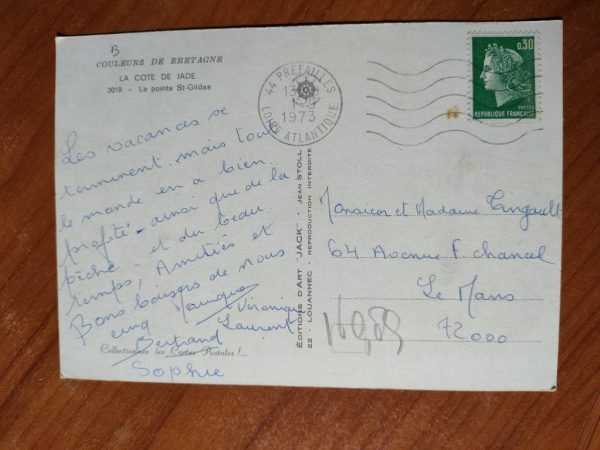 B
COULEURS DE BRETAGNE
LA COTE DE JADE
2019 - La pointe St-Gildas
Les vacances se
terminent mais tout
le monde en a bien
profité - ainsi que de la
pêche - et du beau
temps, Amitiés et
Bons baisers de nous
cinq. Véronique
Laurent
Bertrand
Collectionnez les Cartes Postales !...
Sophie
ÉDITIONS D'ART "JACK" - JEAN STOLL
22 - LOUANNEC - REPRODUCTION INTERDITE
44 PREFAILLES
13
1973
LOIRE ATLANTIQUE
0,30
POSTES
REPUBLIQUE FRANÇAISE
Monsieur et Madame Tingault
64 Avenue F. Chancel
Le Mans
72000